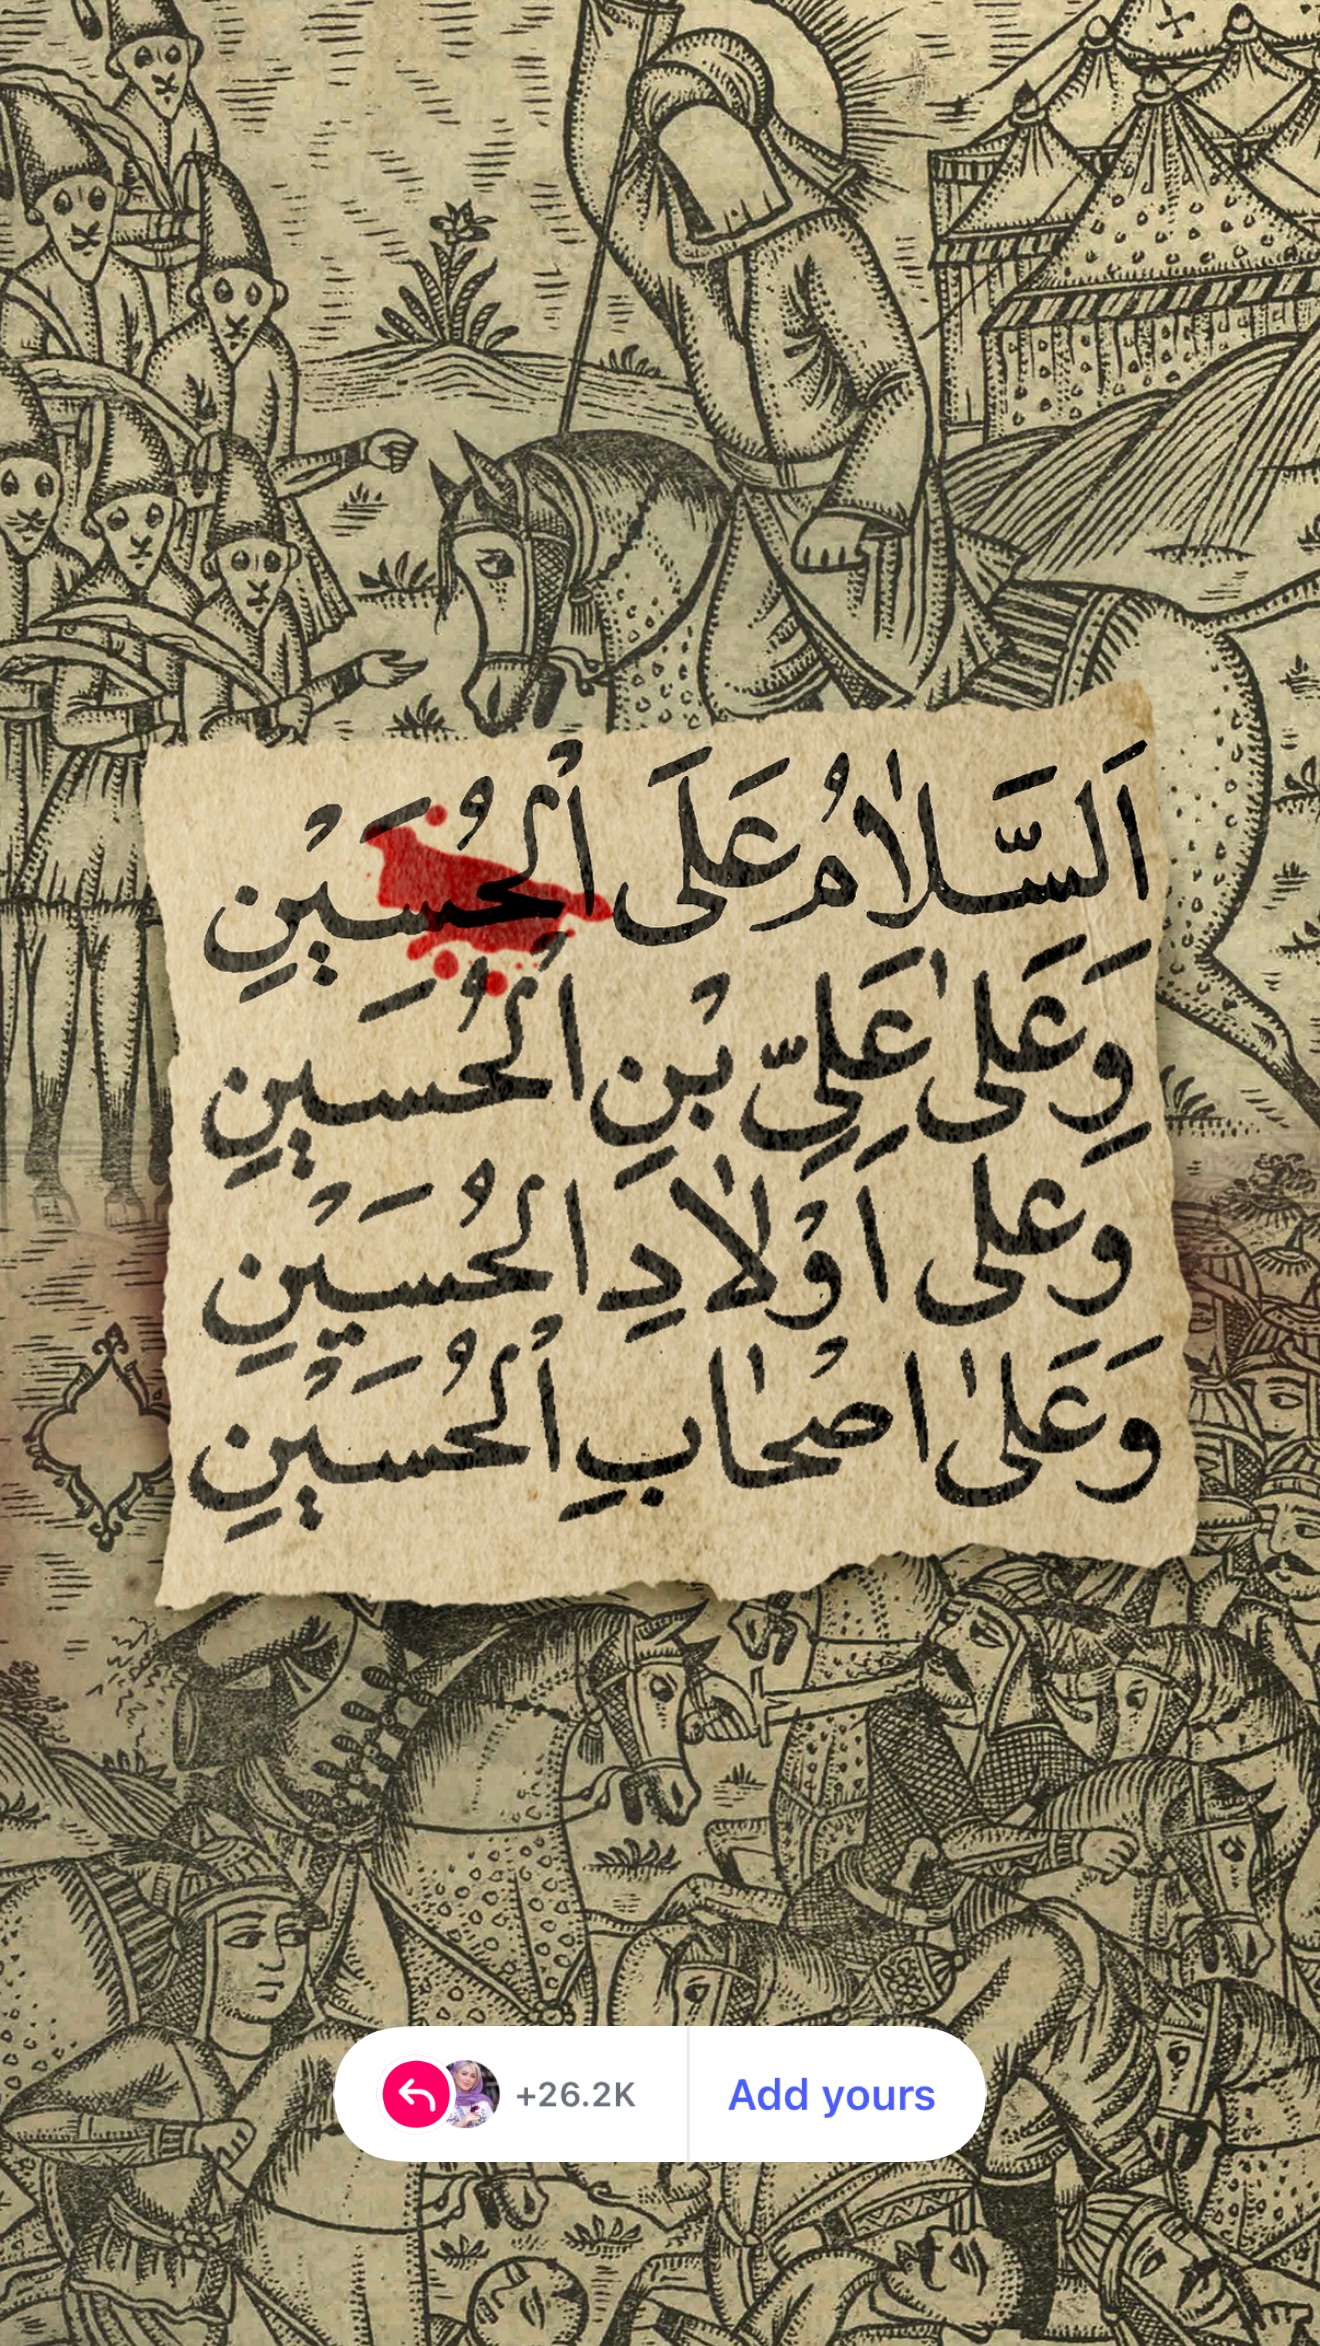 اَلسَّلاٰمُ عَلَی اْلحُسَیْنِ
وَعَلیٰ عَلِیِّ بْنِ الْحُسَینِ
وَعلی اَوْلاٰدِ الْحُسَیْنِ
وَعَلیٰ اصْحٰابِ اْلحُسَیْنِ
+26.2K
Add yours